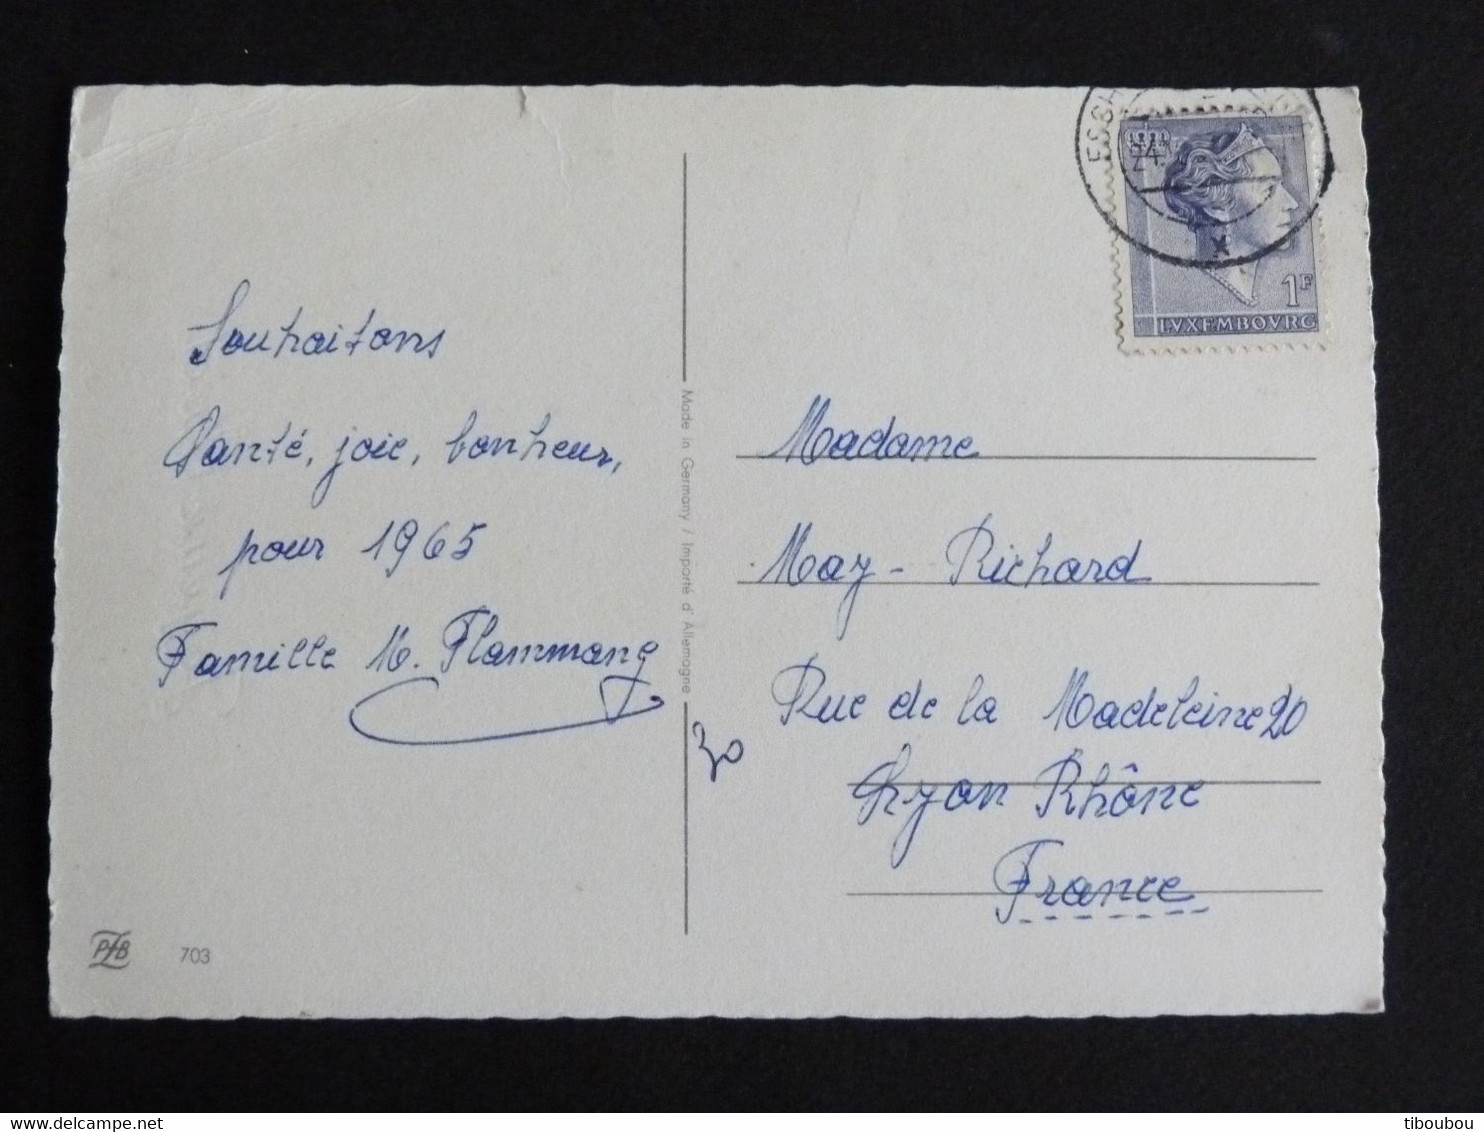 Souhaitons
Santé, joie, bonheur,
pour 1965
Famille M. Flammang
PFB 703
Made in Germany / Importé d'Allemagne
24.
x
1F
LVXEMBOVRG
Madame
May - Richard
Rue de la Madeleine 20
30
Lyon Rhône
France
tiboubou